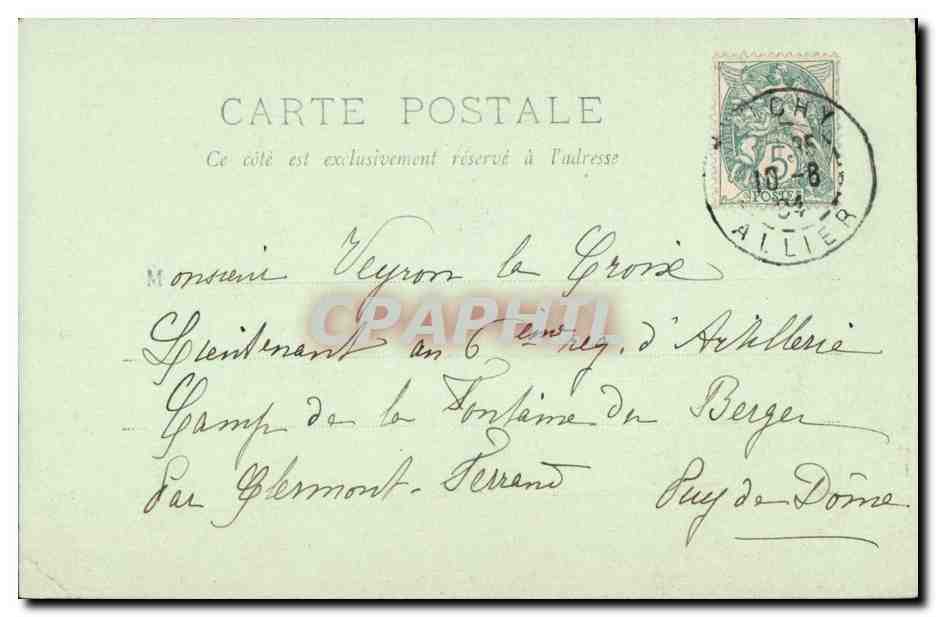 CARTE POSTALE
Ce côté est exclusivement réservé à l'adresse
5c
POSTES
10 - 8
04
ALLIER
Monsieur Veyron la Croix
Lieutenant au 6 eme reg. d'Artillerie
Camp de la Fontaine du Berger
Par Clermont-Ferrand Puy de Dôme
CPAPHIL